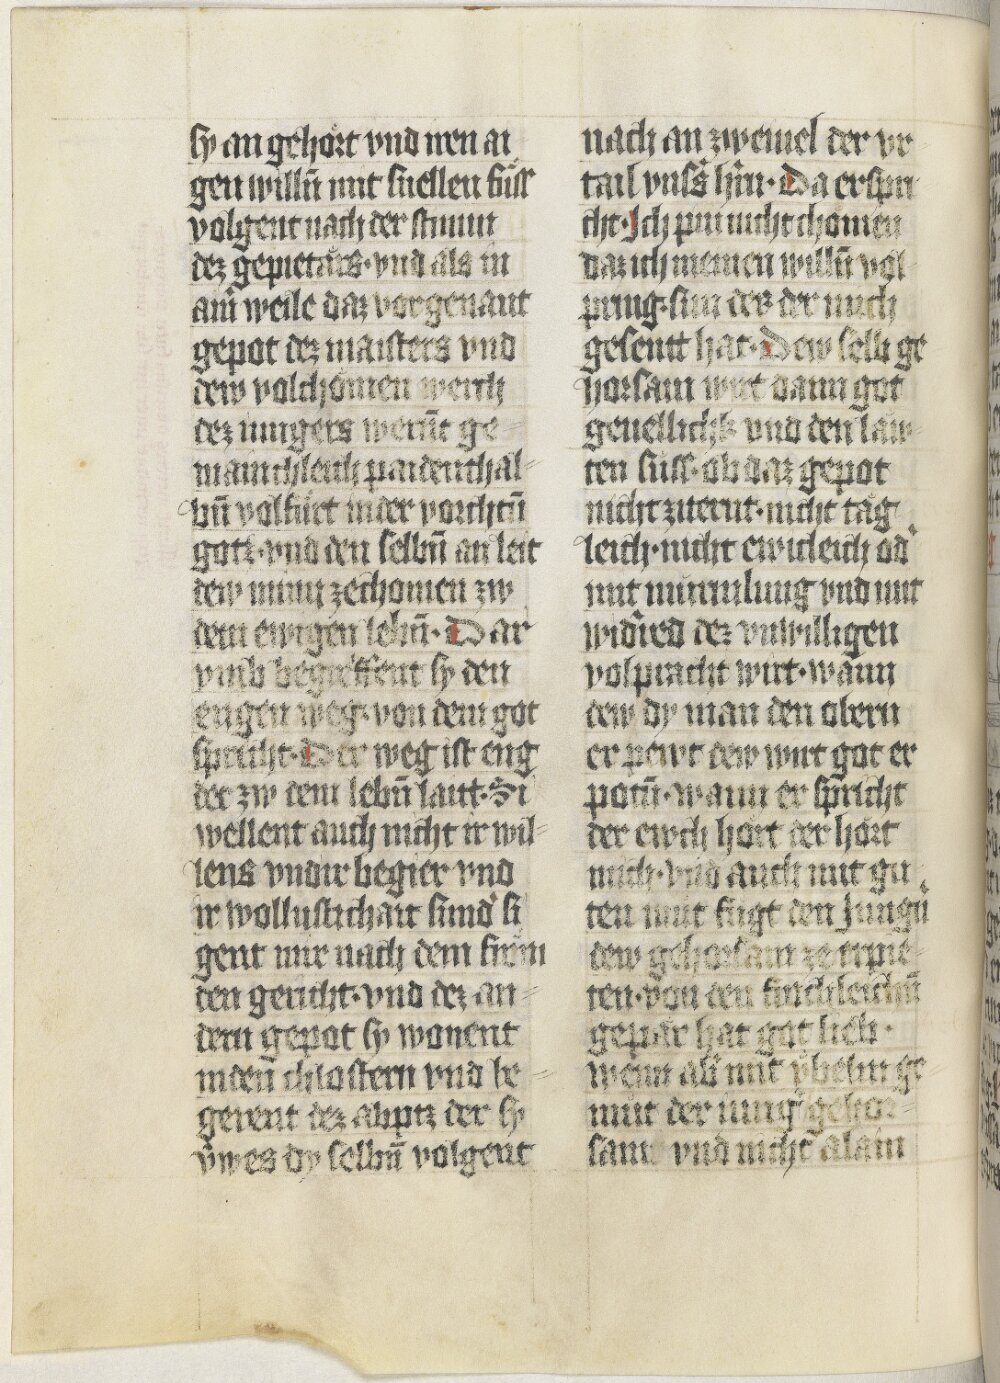 sy an gehört vnd nen ai
gen willn̄ mit snellen füss
volgent nach der stimm
dez gepietärs · vnd als in
aim̄ weile daz vorgenant
gepot dez maisters vnd
dew volchömen werch
dez iungers wernt̄ ge=
mainchleich paidenthal=
bn̄ volfürt in der vorchtn̄
gotz · vnd den selbn̄ an leit
dew minn zechomen zw
dem ewigen lebn̄ · Dar
vmb begreffent sy den
engen weg · von dem got
spricht · Der weg ist eng
der zw dem lebn̄ laitt · Si
wellent auch nicht ir wil=
lens vnd ir begier vnd
ir wollustichait sund̾ si
gent mir nach dem främ
den gericht · vnd dez an=
dern gepot sy wonent
in den̄ chlostern vnd be=
gerent dez abptz der sy
v̈wes dy selbn̄ volgent
nach an zweiuel der vr
tail vnss̾ h̾rn · Da er spri
cht · Ich pin nicht chomen
daz ich meinen willn̄ vol
pring · sun̄ dez der mich
gesentt hat · Dew selb ge
horsam wirt dann got
geuellich vnd den law=
ten süss · ob daz gepot
nicht ziternt · nicht träg
leich · nicht ewicleich od̾
mit murmlung vnd mit
wid̾red dez vnwilligen
volpracht wirt · wann
dew dy man den obern
er pewt dew wirt got er
potn̄ · wann er spricht
der ewch hört der hört
mich · vnd auch mit gu
ten müt fügt den Jungn̄
dew gehorsam ze erpie=
ten · von den
gepär hat got lieb ·
wenn ab̾ mit v̈beln̄ ge
müt der iung gehor=
samt vnd nicht alain